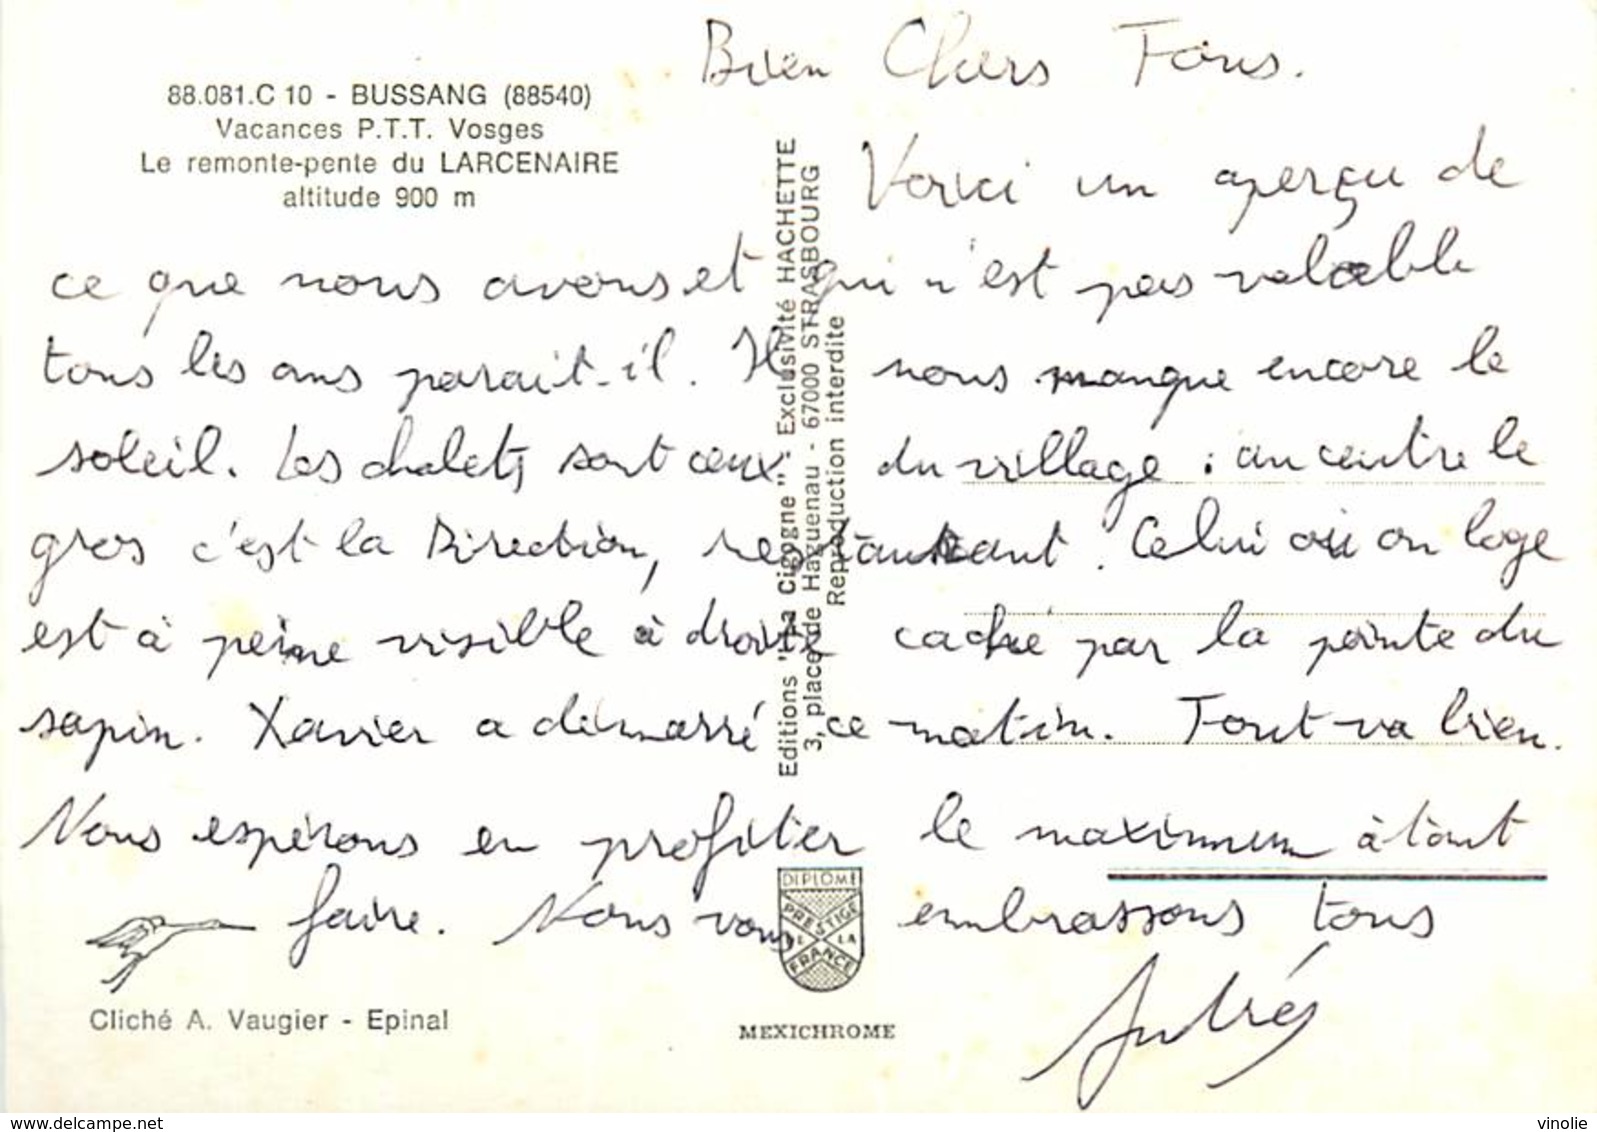 88.081.C 10 - BUSSANG (88540)
Vacances P.T.T. Vosges
Le remonte-pente du LARCENAIRE
altitude 900 m
Bien Chers Tous.
Voici un aperçu de
ce que nous avons et qui n'est pas valable
tous les ans parait-il. Il nous manque encore le
soleil. Les chalets sont ceux du village : au centre le
gros c'est la Direction, restaurant. Celui où on loge
est à peine visible à droite caché par la pointe du
sapin. Xavier a démarré ce matin. Tout va bien.
Nous espérons en profiter le maximum à tout
faire. Nous vous embrassons tous
Editions "La Cigogne" - Exclusivité HACHETTE
3, place de Haguenau - 67000 STRASBOURG
Reproduction interdite
DIPLOME
PRESTIGE
DE LA
FRANCE
Cliché A. Vaugier - Epinal
MEXICHROME
www.delcampe.net
vinolie